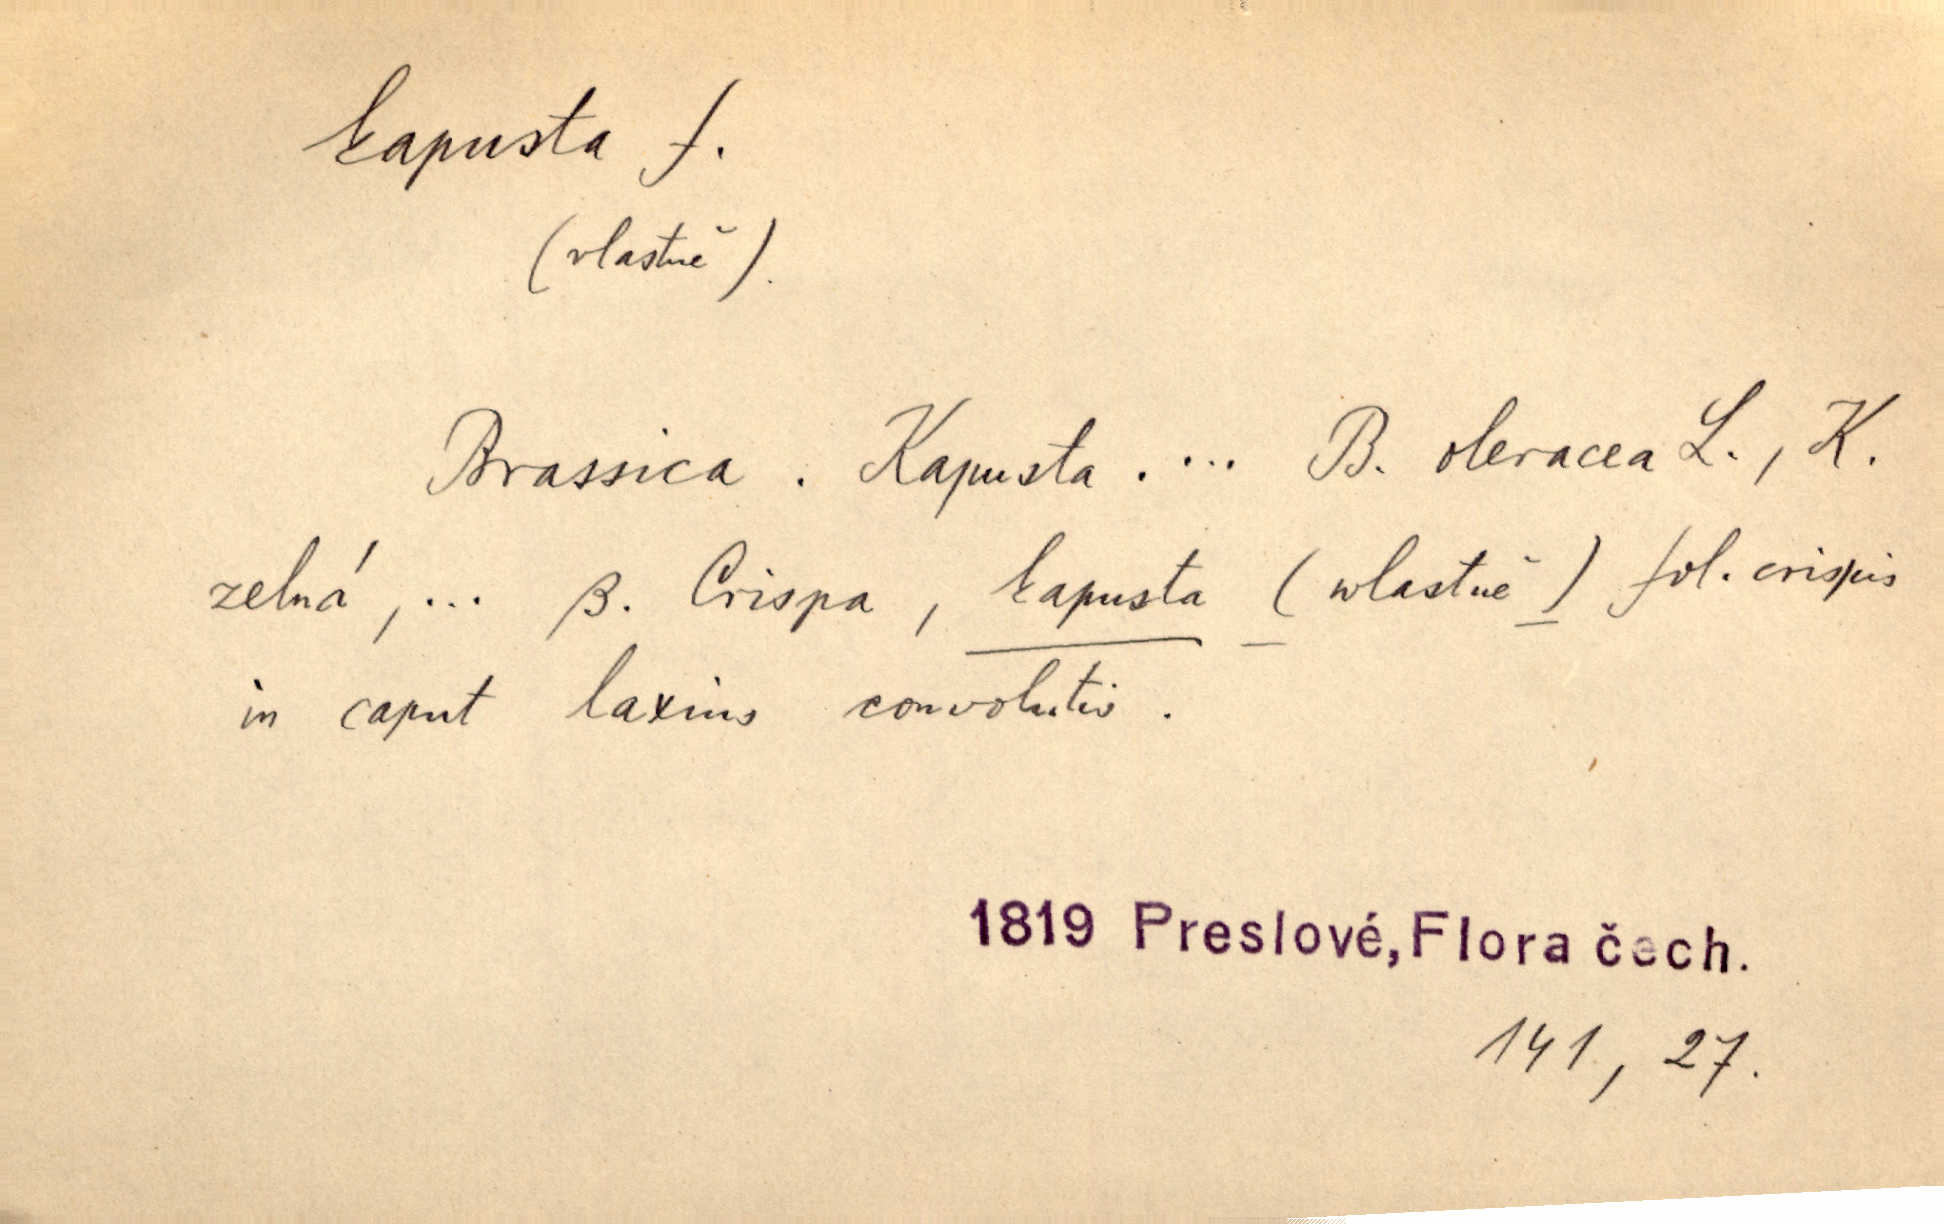 kapusta f.
(vlastně).
Brassica. Kapusta. ... B. oleracea L., K.
zelná, ... β. Crispa, kapusta (wlastně) fol. crispis
in caput laxius convolutis.
1819 Preslové, Flora čech.
141, 27.